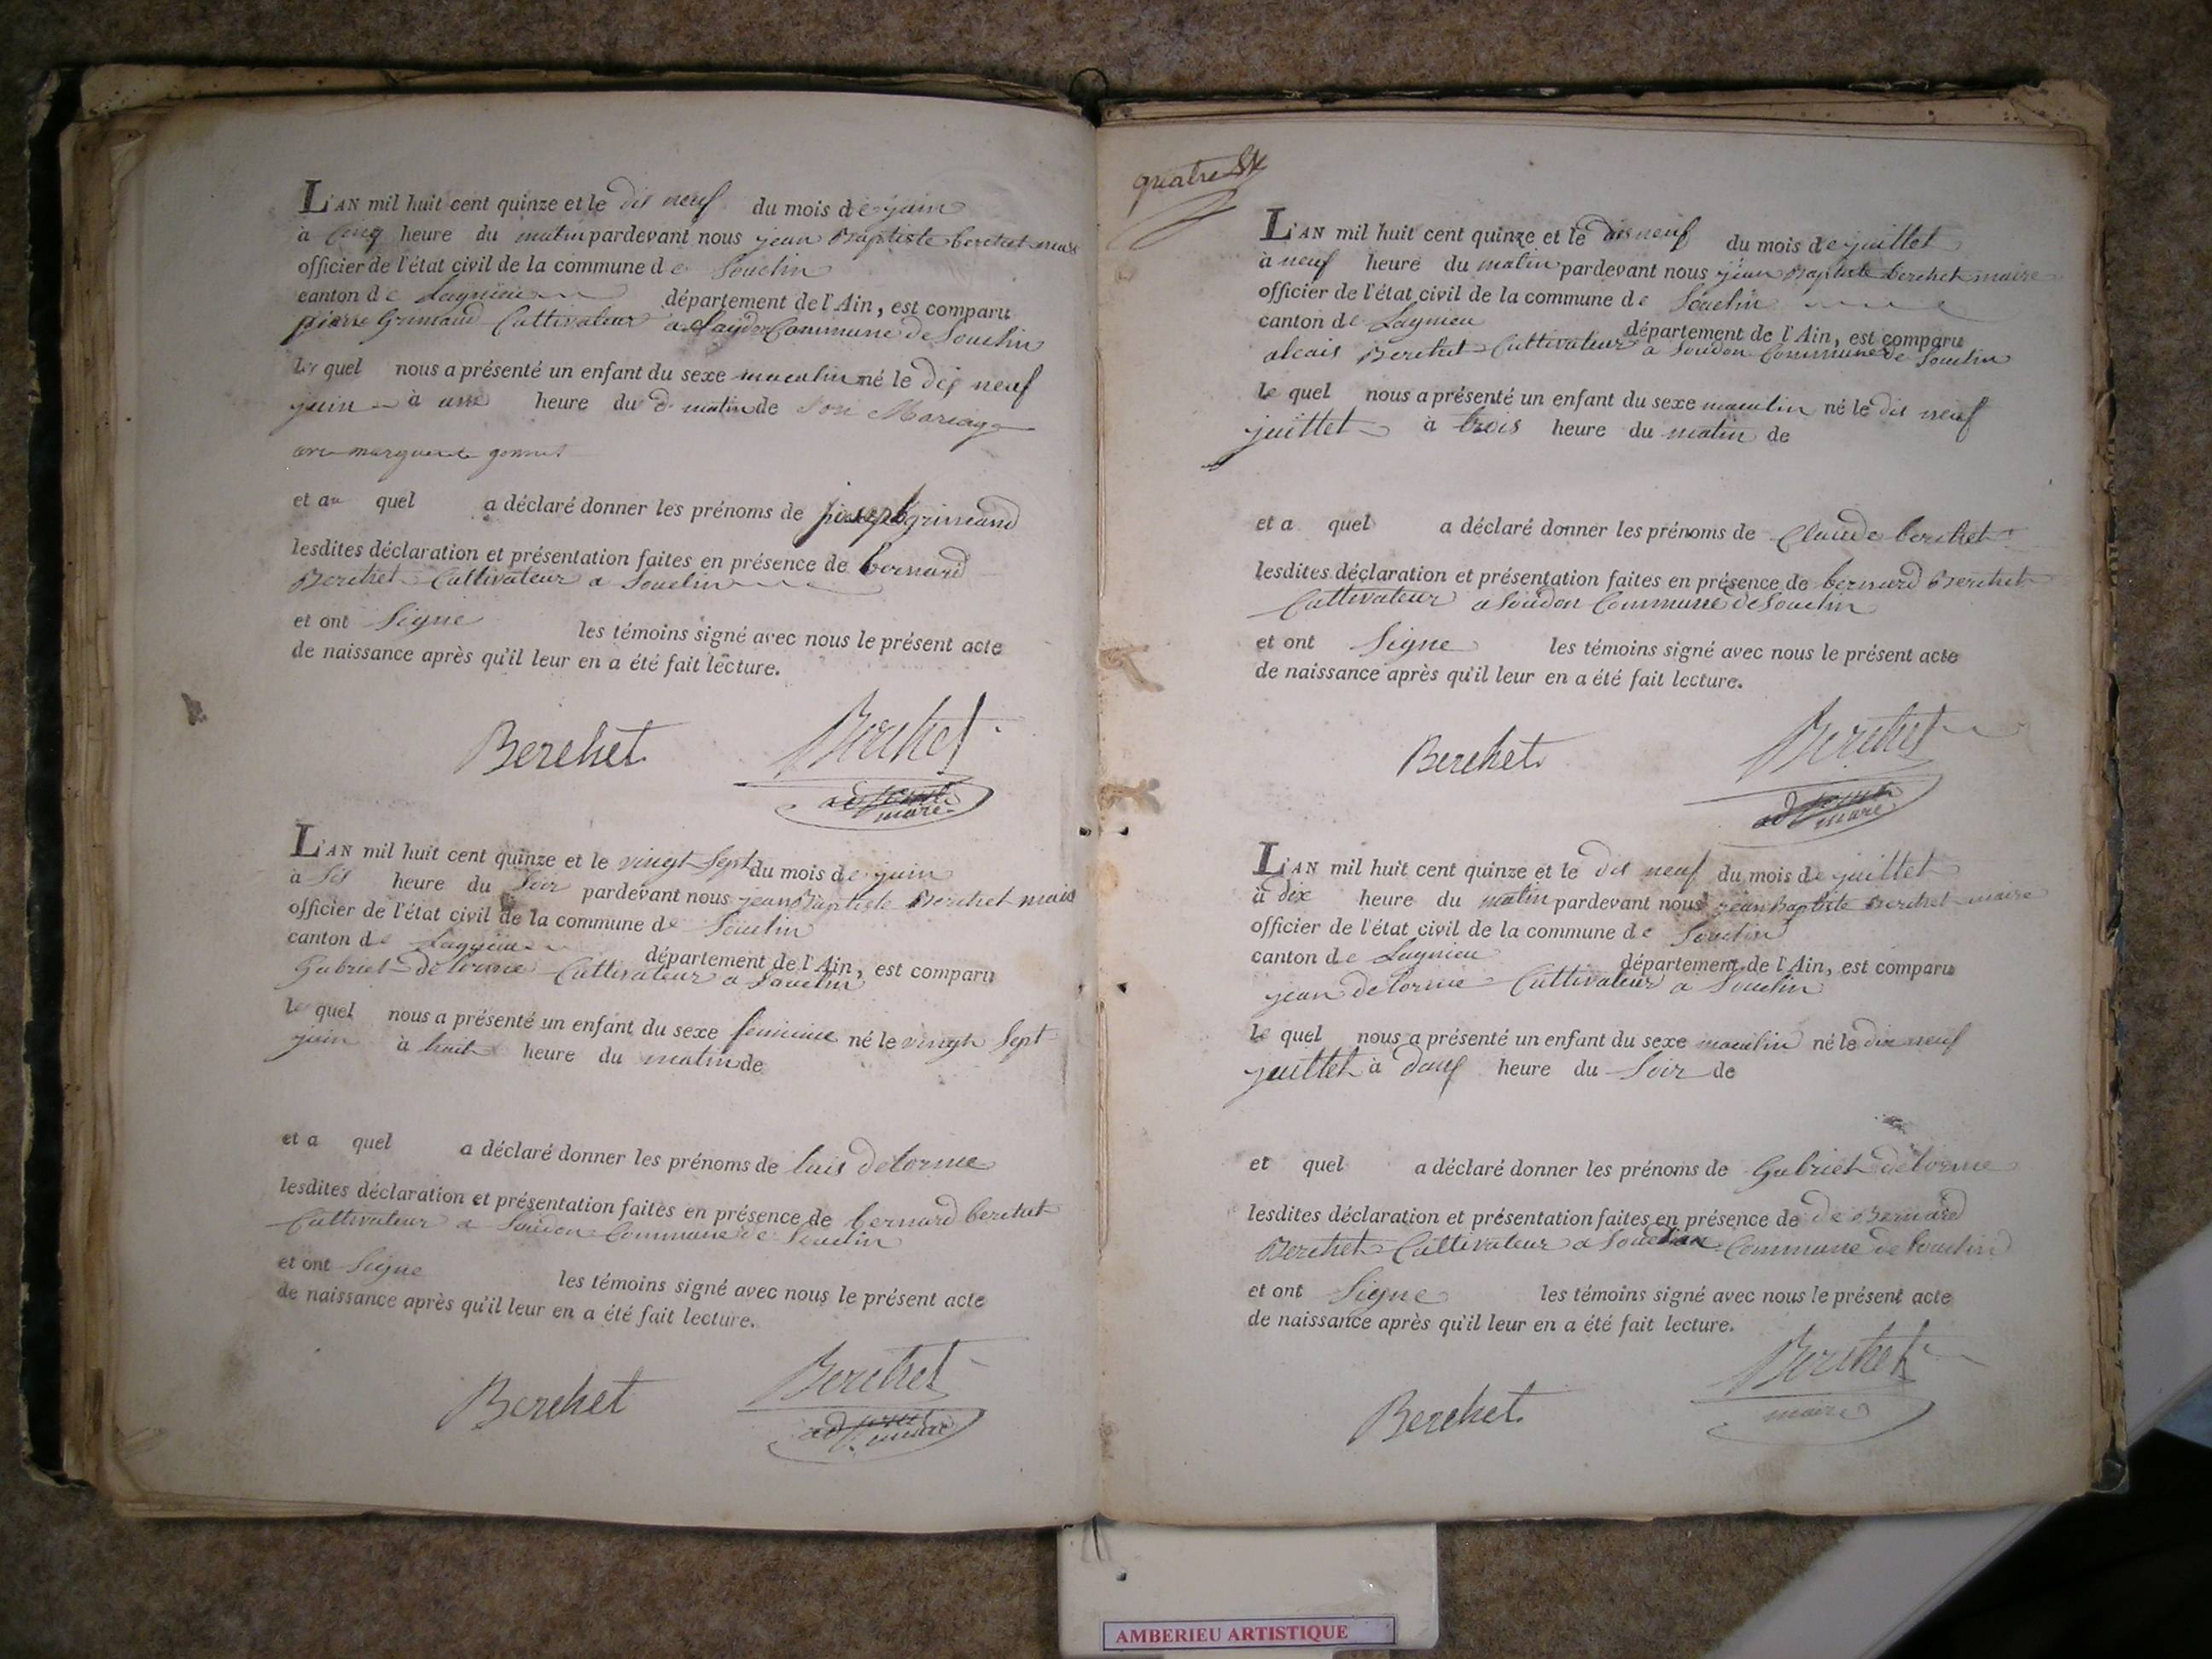 L'AN mil huit cent quinze et le dis neuf du mois de juin
à Cinq heure du matin pardevant nous jean Baptiste berchet maire
officier de l'état civil de la commune de Souclin
canton de Lagnieu département de l'Ain, est comparu
pierre Grimaud Cultivateur a Commune de Souclin
le quel nous a présenté un enfant du sexe masculin né le dis neuf
juin à une heure du d. matin de Son Mariage
avec marguerite gonnet
et au quel a déclaré donner les prénoms de joseph grimaud
lesdites déclaration et présentation faites en présence de bernard
Berchet Cultivateur a Souclin
et ont Signe les témoins signé avec nous le présent acte
de naissance après qu'il leur en a été fait lecture.
Berchet Berchet
maire
L'AN mil huit cent quinze et le vingt Sept du mois de juin
à Sis heure du Soir pardevant nous jean Baptiste Berchet maire
officier de l'état civil de la commune de Souclin
canton de Lagnieu département de l'Ain, est comparu
Gabriel delorme Cultivateur a Souclin
le quel nous a présenté un enfant du sexe feminine né le vingt Sept
juin à huit heure du matin de
et a quel a déclaré donner les prénoms de luis delorme
lesdites déclaration et présentation faites en présence de bernard berchet
Cultivateur a Soudon Commune de Souclin
et ont Signe les témoins signé avec nous le présent acte
de naissance après qu'il leur en a été fait lecture.
Berchet Berchet
maire
quatre
L'AN mil huit cent quinze et le dis neuf du mois de juillet
à neuf heure du matin pardevant nous jean Baptiste berchet maire
officier de l'état civil de la commune de Souclin
canton de Lagnieu département de l'Ain, est comparu
alexis Berchet Cultivateur a Soudon Commune de Souclin
le quel nous a présenté un enfant du sexe masculin né le dis neuf
juillet à trois heure du matin de
et a quel a déclaré donner les prénoms de Claude berchet
lesdites déclaration et présentation faites en présence de bernard Berchet
Cultivateur a Soudon Commune de Souclin
et ont Signe les témoins signé avec nous le présent acte
de naissance après qu'il leur en a été fait lecture.
Berchet Berchet
maire
L'AN mil huit cent quinze et le dis neuf du mois de juillet
à dix heure du matin pardevant nous jean Baptiste Berchet maire
officier de l'état civil de la commune de Souclin
canton de Lagnieu département de l'Ain, est comparu
jean delorme Cultivateur a Souclin
le quel nous a présenté un enfant du sexe masculin né le dix neuf
juillet à heure du Soir de
et quel a déclaré donner les prénoms de Gabriel delorme
lesdites déclaration et présentation faites en présence de de Bernard
Berchet Cultivateur a Commune de Souclin
et ont Signe les témoins signé avec nous le présent acte
de naissance après qu'il leur en a été fait lecture.
Berchet Berchet
maire
AMBERIEU ARTISTIQUE